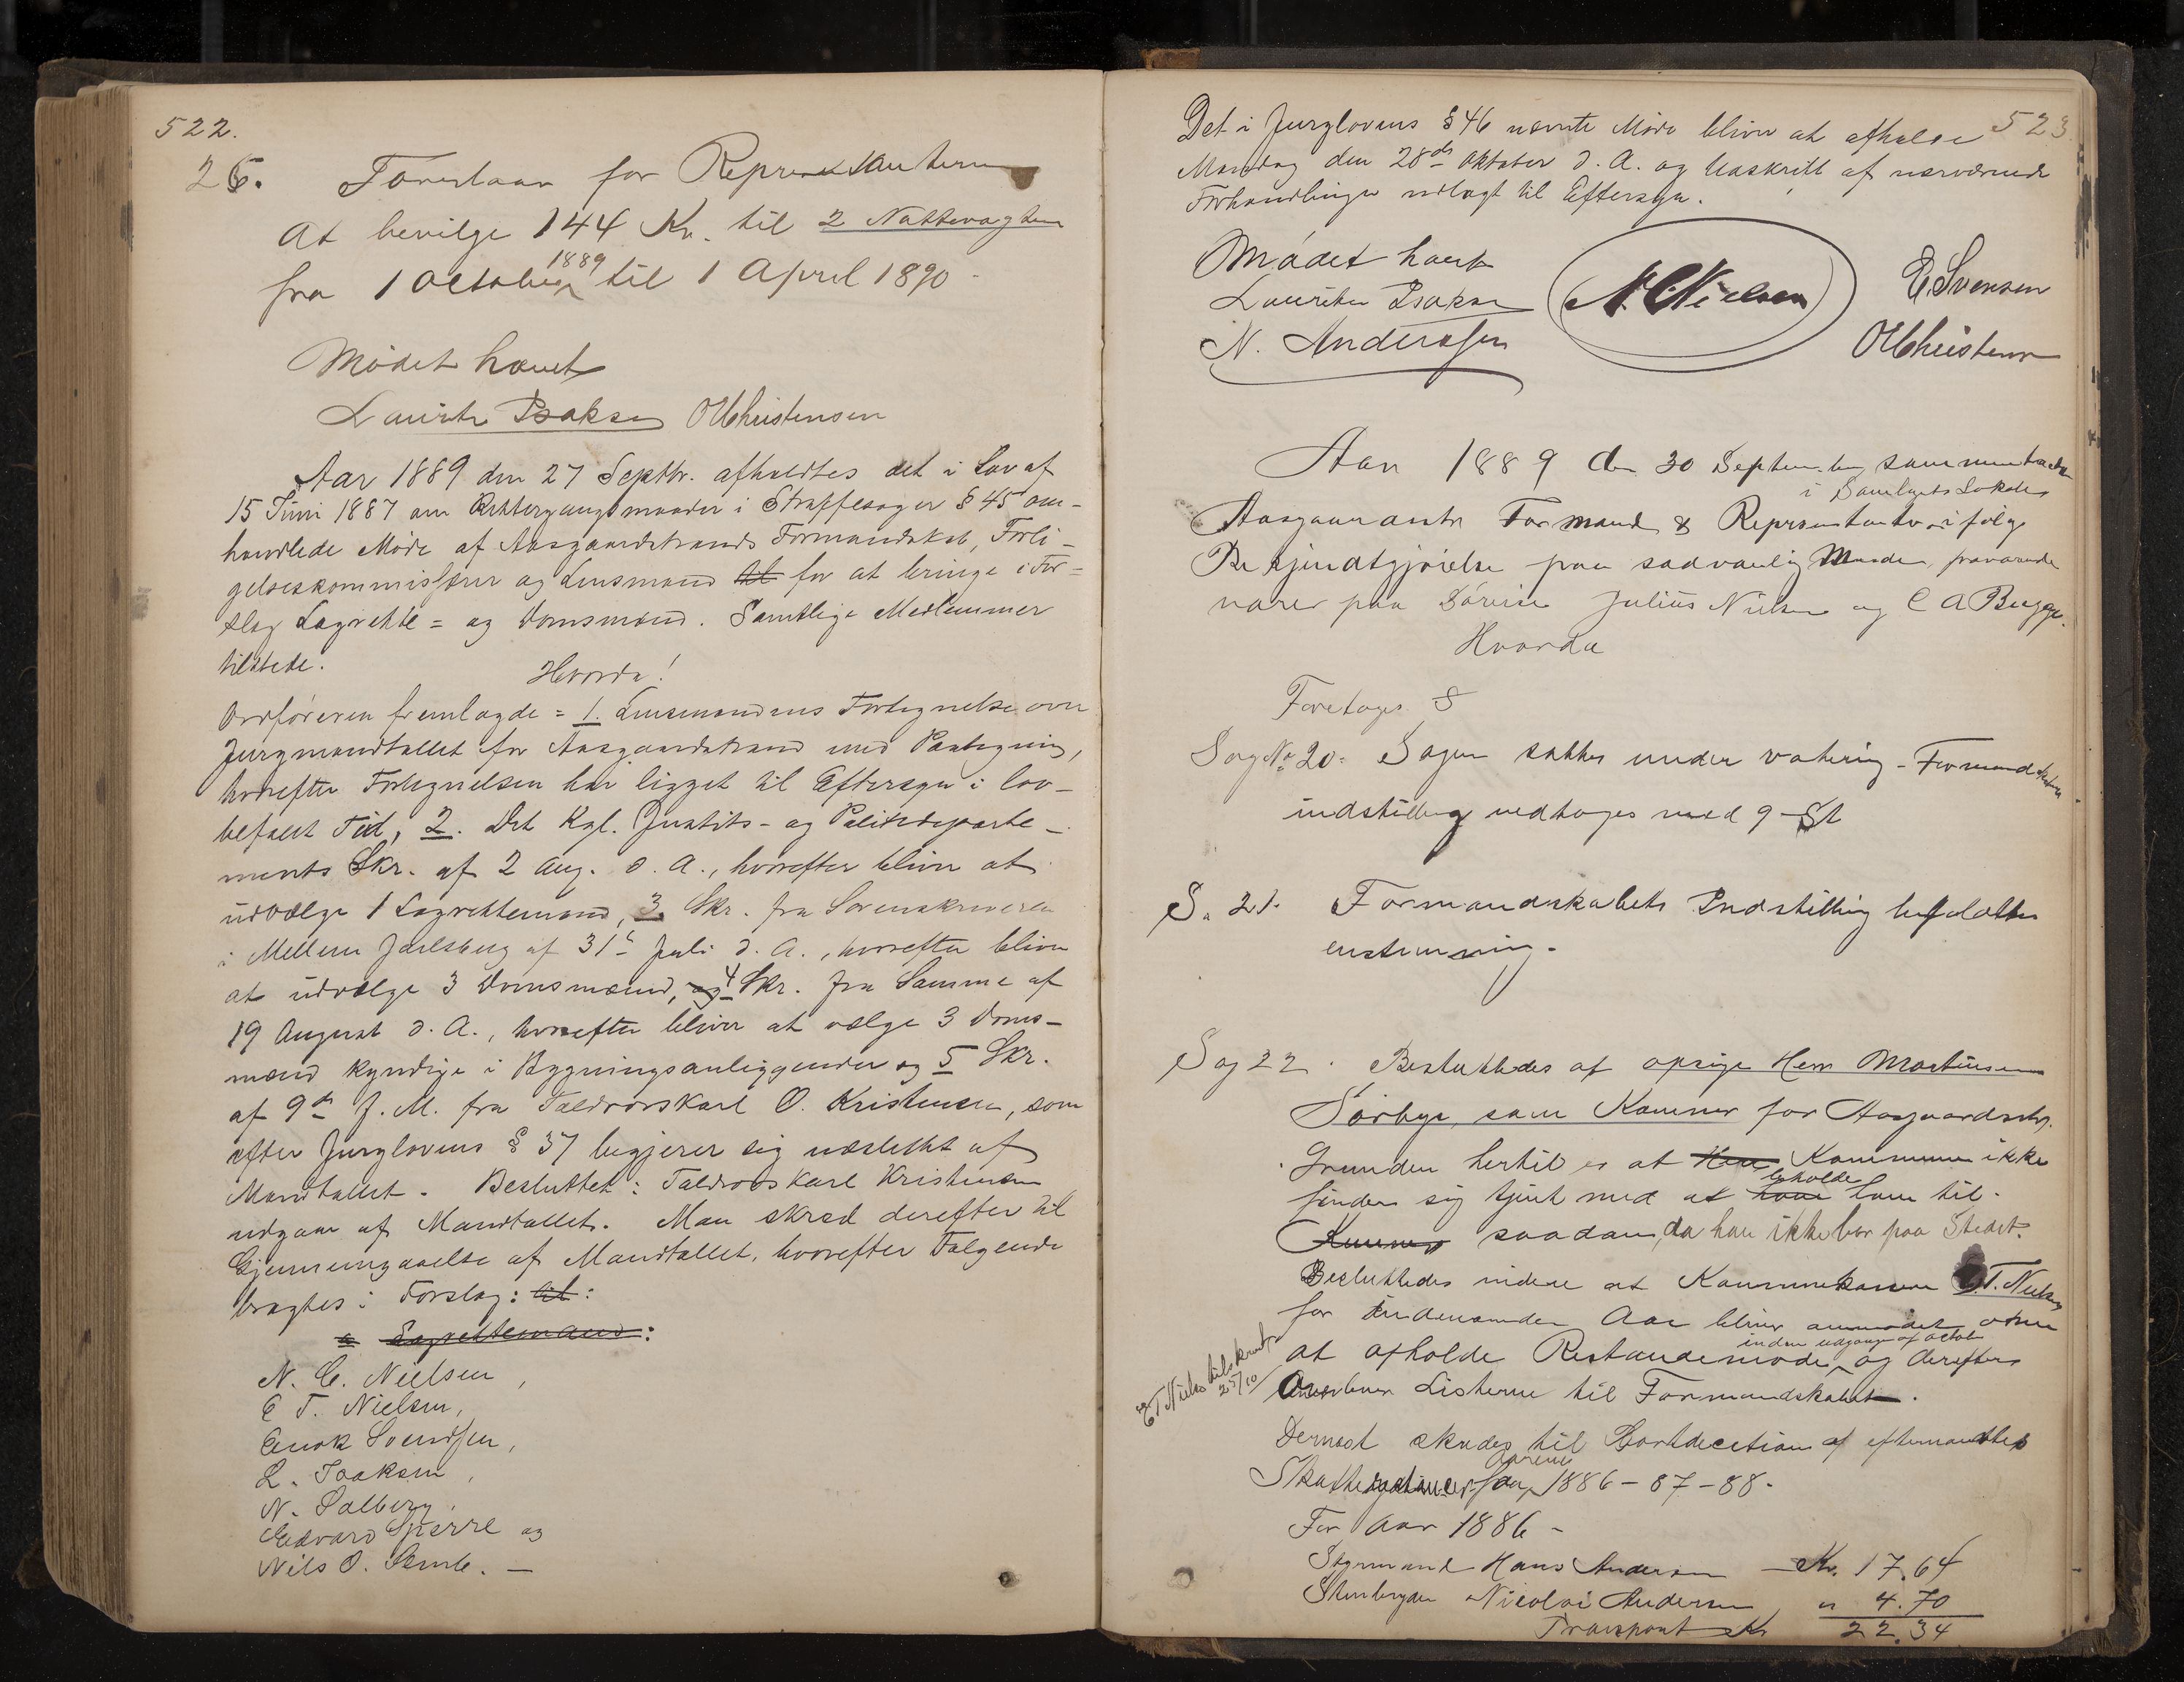 522.
26. Forestaar for Repræsentanterne
At bevilge 144 Kr. til 2 Nattevagter
fra 1 October 1889 til 1 April 1890
Mødet hævet
Lauritz Isaksen OM Christensen
Aar 1889 den 27 Septbr. afholdtes det i Lov af
15 Juni 1887 om Rettergangsmaader i Straffesager § 45 om-
handlede Møde af Aasgaardstrands Formandskab, Forli-
gelseskommissærer og Lensmand til for at bringe i For-
slag Lagrette- og Domsmænd. Samtlige Medlemmer
tilstede.
Hvorda!
Ordføreren fremlagde = 1. Lensmandens Fortegnelse over
Jurymandtallet for Aasgaardstrand med Paategning,
hvorefter Fortegnelsen har ligget til Eftersyn i lov-
befalet Tid, 2. Det Kgl. Justits- og Politideparte-
ments Skr. af 2 Aug. d. A., hvorefter bliver at
udvælge 1 Lagrettemand, 3. Skr. fra Sorenskriveren
i Mellem Jarlsberg af 31te Juli d. A., hvorefter bliver
at udvælge 3 Domsmænd, og 4 Skr. fra Samme af
19 August d. A., hvorefter bliver at vælge 3 Doms-
mænd kyndige i Bygningsanliggender og 5 Skr.
af 9de J. M. fra Toldrorskarl O. Kristensen, som
efter Jurylovens § 37 begjerer sig udslettet af
Mandtallet. Besluttet: Toldrorskarl Kristensen
udgaar af Mandtallet. Man skred derefter til
Gjennemgaaelse af Mandtallet, hvorefter Følgende
bragtes i Forslag: til:
a Lagrettemænd:
N. C. Nielsen,
E T. Nielsen,
Enok Svendsen,
L. Isaksen,
N. Solberg,
Edvard Sperre og
Nils O. Semb. —
523
Det i Jurylovens § 46 nævnte Møde bliver at afholde
Mandag den 28de Oktober d. A. og Udskrift af nærværende
Forhandlinger udlagt til Eftersyn.
Mødet hævet
Lauritz Isaksen N. C. Nielsen E. Svensen
N. Anderssen OM Christensen
Aar 1889 den 30 September sammentraadte
i Samlagets Lokale
Aasgaardstr Formænd & Repræsentanter ifølge
Bekjendtgjørelse paa sædvanlig Maade, fraværende
varer paa Søreise Julius Nielsen og C A Bugge.
Hvorda
Foretoges
Sag No 20. Sagen sattes under votering - Formandskabets
indstilling vedtoges med 9 St
S. 21. Formandskabets Indstilling bifaldtes
enstemmig.
Sag 22. Besluttedes at opsige Herr Martinsen
Sørbye, som Kæmner for Aasgaardstr.
Grunden hertil er at Herr Kommunen ikke
finder sig tjent med at have beholde ham til
Kæmner saadan, da han ikke bor paa Stedet.
Besluttedes videre at Kommunekasserer E. T. Nielsen
for indeværende Aar bliver anmodet om
at afholde Restancemøde inden udgangen af October og derefter
Overlever Listerne til Formandskabet.
ET Nielsen tilskrevet 25/10
Dernæst skredes til af efternævnte
Skatterestancer for Aarene 1886-87-88.
For Aar 1886 -
Styrmand Hans Andersen — Kr. 17.64
Nicolai Andersen " 4.70
Transport Kr 22.34